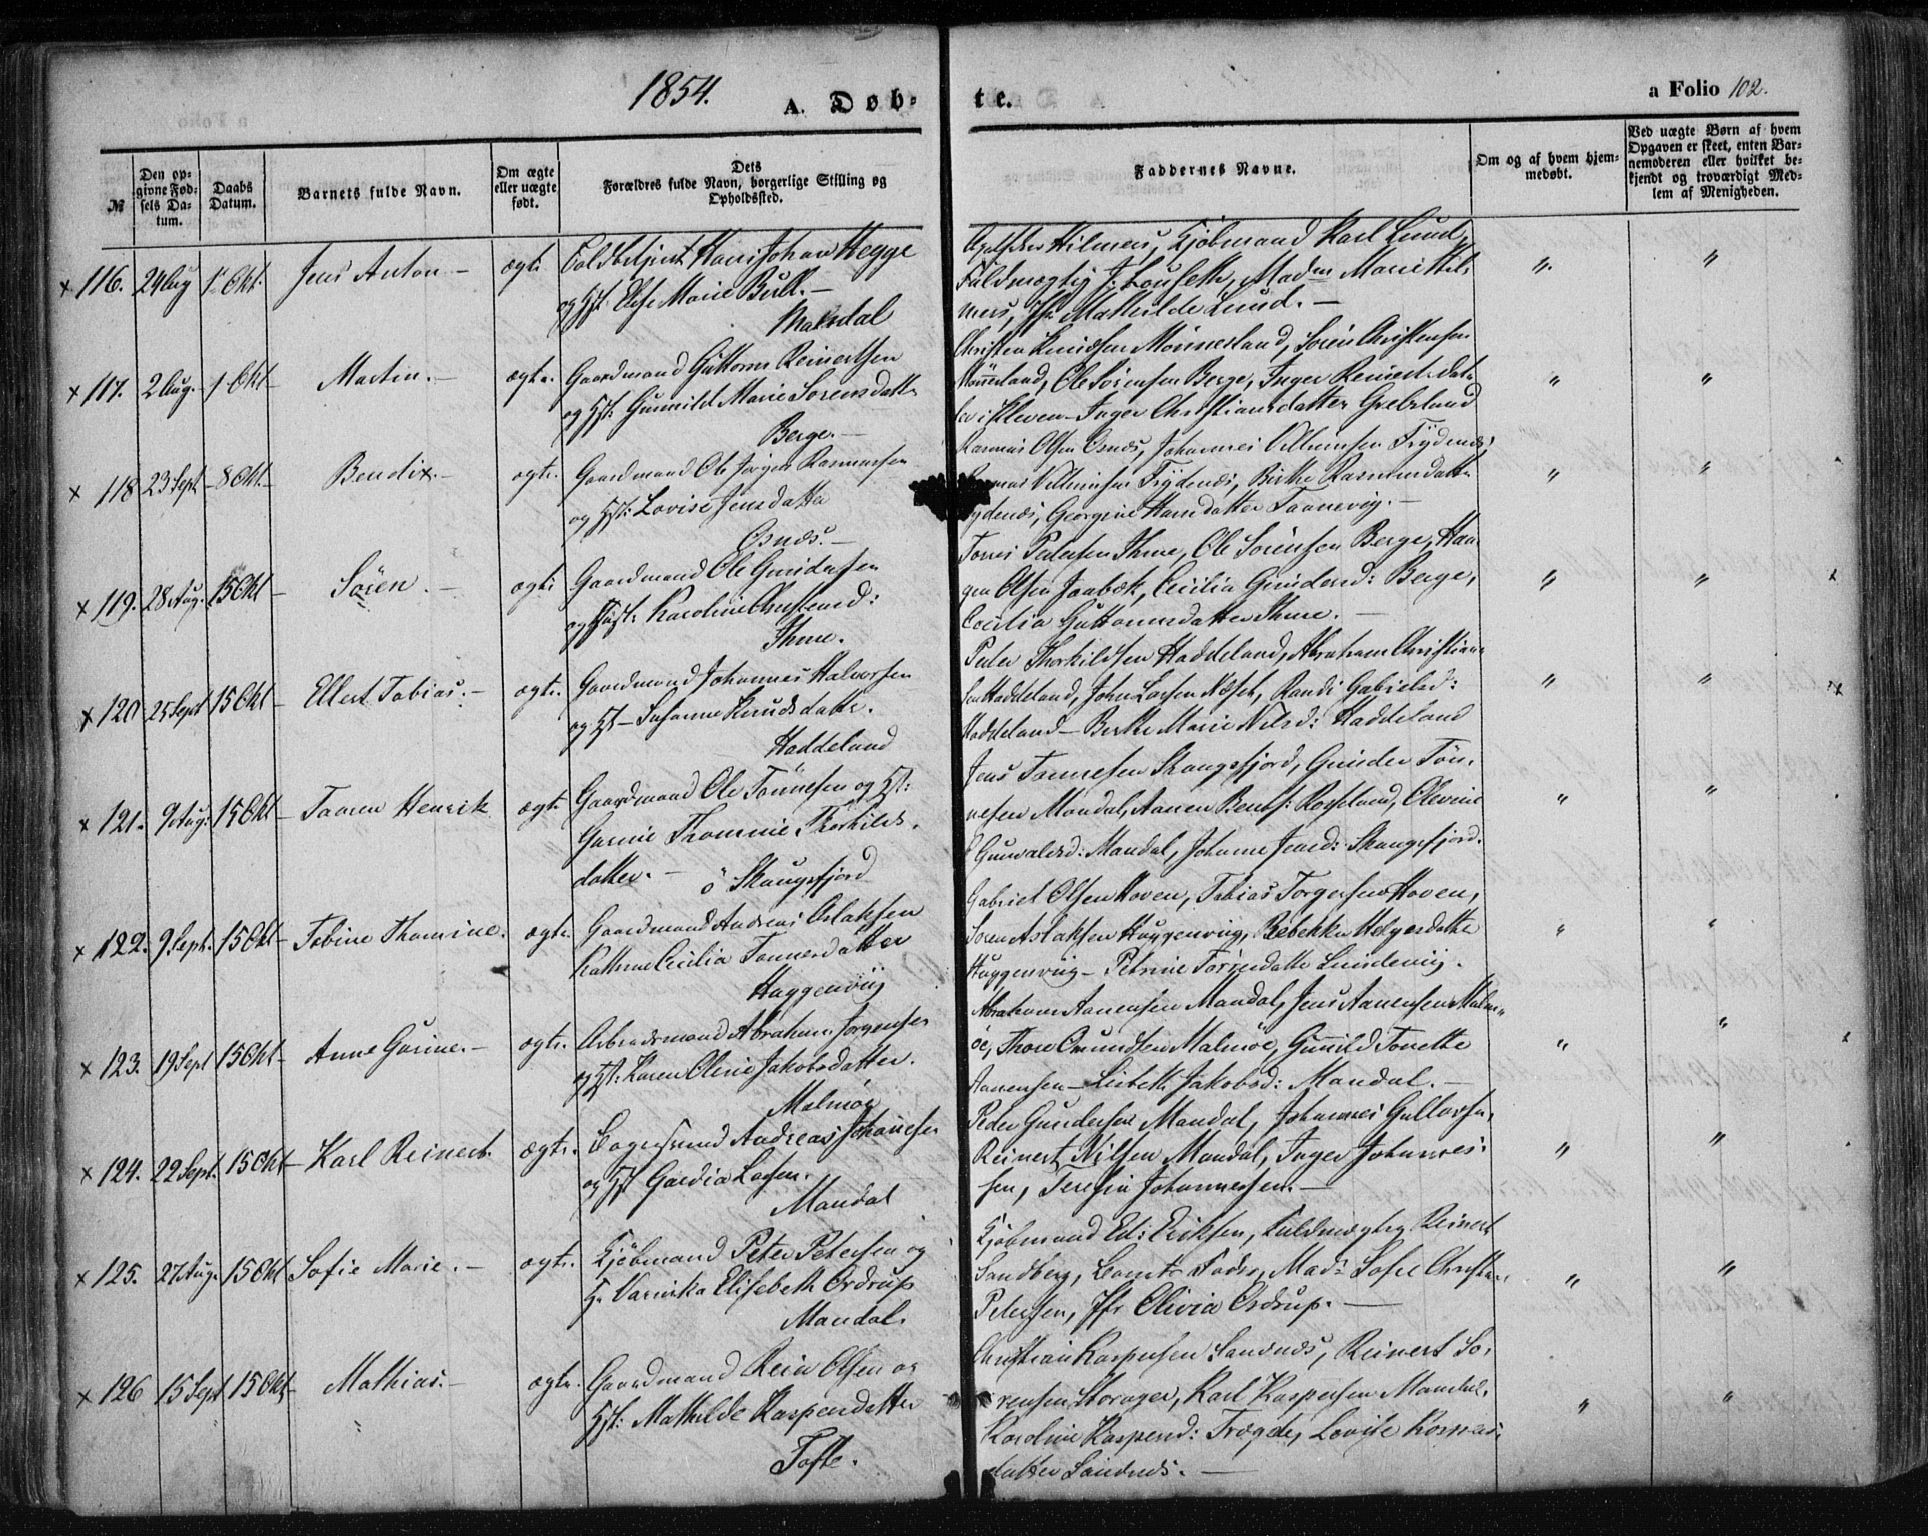 1854.
A. Døb-
te.
a Folio 102.
№
Den op-
givne Fød-
sels Da-
tum.
Daabs
Datum.
Barnets fulde Navn.
Om ægte
eller uægte
født.
Dets
Forældres fulde Navn, borgerlige Stilling og
Opholdssted.
Faddernes Navne.
Om og af hvem hjem-
medøbt.
Ved uægte Børn af hvem
Opgaven er skeet, enten Bar-
nemoderen eller hvilket be-
kjendt og troværdigt Med-
lem af Menigheden.
x 116. 24 Aug 1 Okt. Jens Anton - ægte Hans Johan Hegge
og Hst: Else Marie Bull. -
Mandal
Hilmers, Kjøbmand Karl Lund,
Fuldmægtig J. Louseth, Madm Marie Hil-
mers, Jfr Mathilde Lund. -
" "
x 117. 2 Aug. 1 Okt Martin. - ægte. Gaardmand Guttorm Reinertsen
og Hst: Gunnild Marie Sorensdatter
Berge. -
Christen Knudsen Mönnesland, Sören Christensen
Mönnesland, Ole Sörensen Berge, Inger Reinertsdat-
ter Kleven - Inger Christiansdatter Greibsland
" "
x 118 23 Sept - 8 Okt - Bendix. - ægte. Gaardmand Ole Jørgen Rasmussen
og Hst: Lovise Jensdatter
Osnæs. -
Rasmus Olsen Osnæs, Johannes Villumsen Frydenæs,
Rasmus Villumsen Frydenæs, Birthe Rasmusdatter
Frydenæs, Georgine Hansdatter Taanevig. -
" "
x 119. 28 Aug. 15 Okt - Sören. - ægte Gaardmand Ole Gundersen
og Hst: Karoline Christensd:
Ihme.
Tönnes Pedersen Ihme, Ole Sörensen Berge, Haa-
gen Olsen Jaabæk, Cecilia Gundersd: Berge,
Cecilia Guttormsdatter Ihme. -
" "
x 120 25 Sept 15 Okt - Ellert Tobias. - ægte. Gaardmand Johannes Halvorsen
og Hst - Susanne Knudsdatter.
Haddeland
Peder Thorkildsen Haddeland, Abraham Christian-
sen Haddeland, John Larsen Næset, Randi Gabrielsd:
Haddeland - Berthe Marie Nilsd: Haddeland
" "
x 121. 9 Aug: 15 Okt - Taaren Henrik ægte Gaardmand Ole Tönnesen og Hst:
Gunnie Thomine Thorkilds-
datter. - ö Skaugsfjord
Jens Tönnesen Skaugsfjord, Gunder Tön-
nesen Mandal, Aanen Bents: Rosseland, Olevine
Gunvaldsd: Mandal, Johanne Jensd: Skaugsfjord.
" "
x 122. 9 Sept. 15 Okt - Tobine Thomine. ægte. Gaardmand Andreas Aslaksen
Kathrine Cecilia Tönnesdatter
Haggenviig
Gabriel Olsen Hoven, Tobias Torgersen Hoven,
Soren Aslaksen Haggenviig, Bebekka Helgesdatter
Haggenviig - Petrine Torrisdatter Lundeviig.
" "
x 123. 19 Sept 15 Okt - Anne Gurine. - ægte. Arbeidsmand Abraham Jorgensen
og Hst: Karen Oline Jakobsdatter.
Malmöe
Abraham Aanensen Mandal, Jens Aanensen Malm-
öe, Thore Omundsen Malmöe, Gunild Tonette
Aanensen - Lisbeth Jakobsd: Mandal. -
" "
x 124. 22 Sept. 15 Okt - Karl Reinert. ægte. Bagersvend Andreas Johannesen
og Hst Gaedia Larsen.
Mandal
Peder Gundersen Mandal, Johannes Gullovsen,
Reinert Nilsen Mandal, Inger Johannes-
sen, Teresia Johannessen. -
" "
x 125. 27 Aug. 15 Okt Sofie Marie. - ægte. Kjöbmand Peter Petersen og
H. Varinka Elisebeth Ordrup
Mandal.
Kjøbmand Ed: Eriksen, Fuldmægtig Reinert
Sandberg, Mad: Sofie Christine
Petersen, Jfr Olivia Ordrup. -
" "
x 126 15 Sept 15 Okt - Mathias. - ægte. Gaardmand Reier Olsen og
Hst: Mathilde Kaspersdatter
Tofte.
Christian Kaspersen Sandnæs, Reinert So-
rensen Storager, Karl Kaspersen Mandal,
Karoline Kaspersd: Trægde, Lovise Rasmus-
datter Sandnæs. -
" "